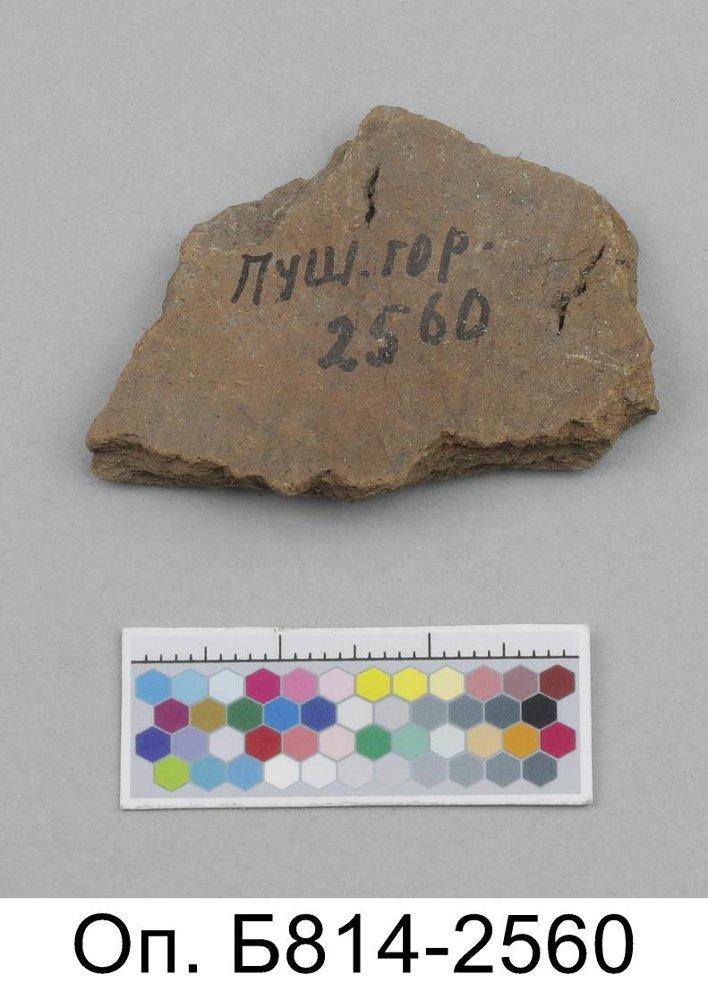 ПУШ.ГОР.
2560
Оп. Б814-2560